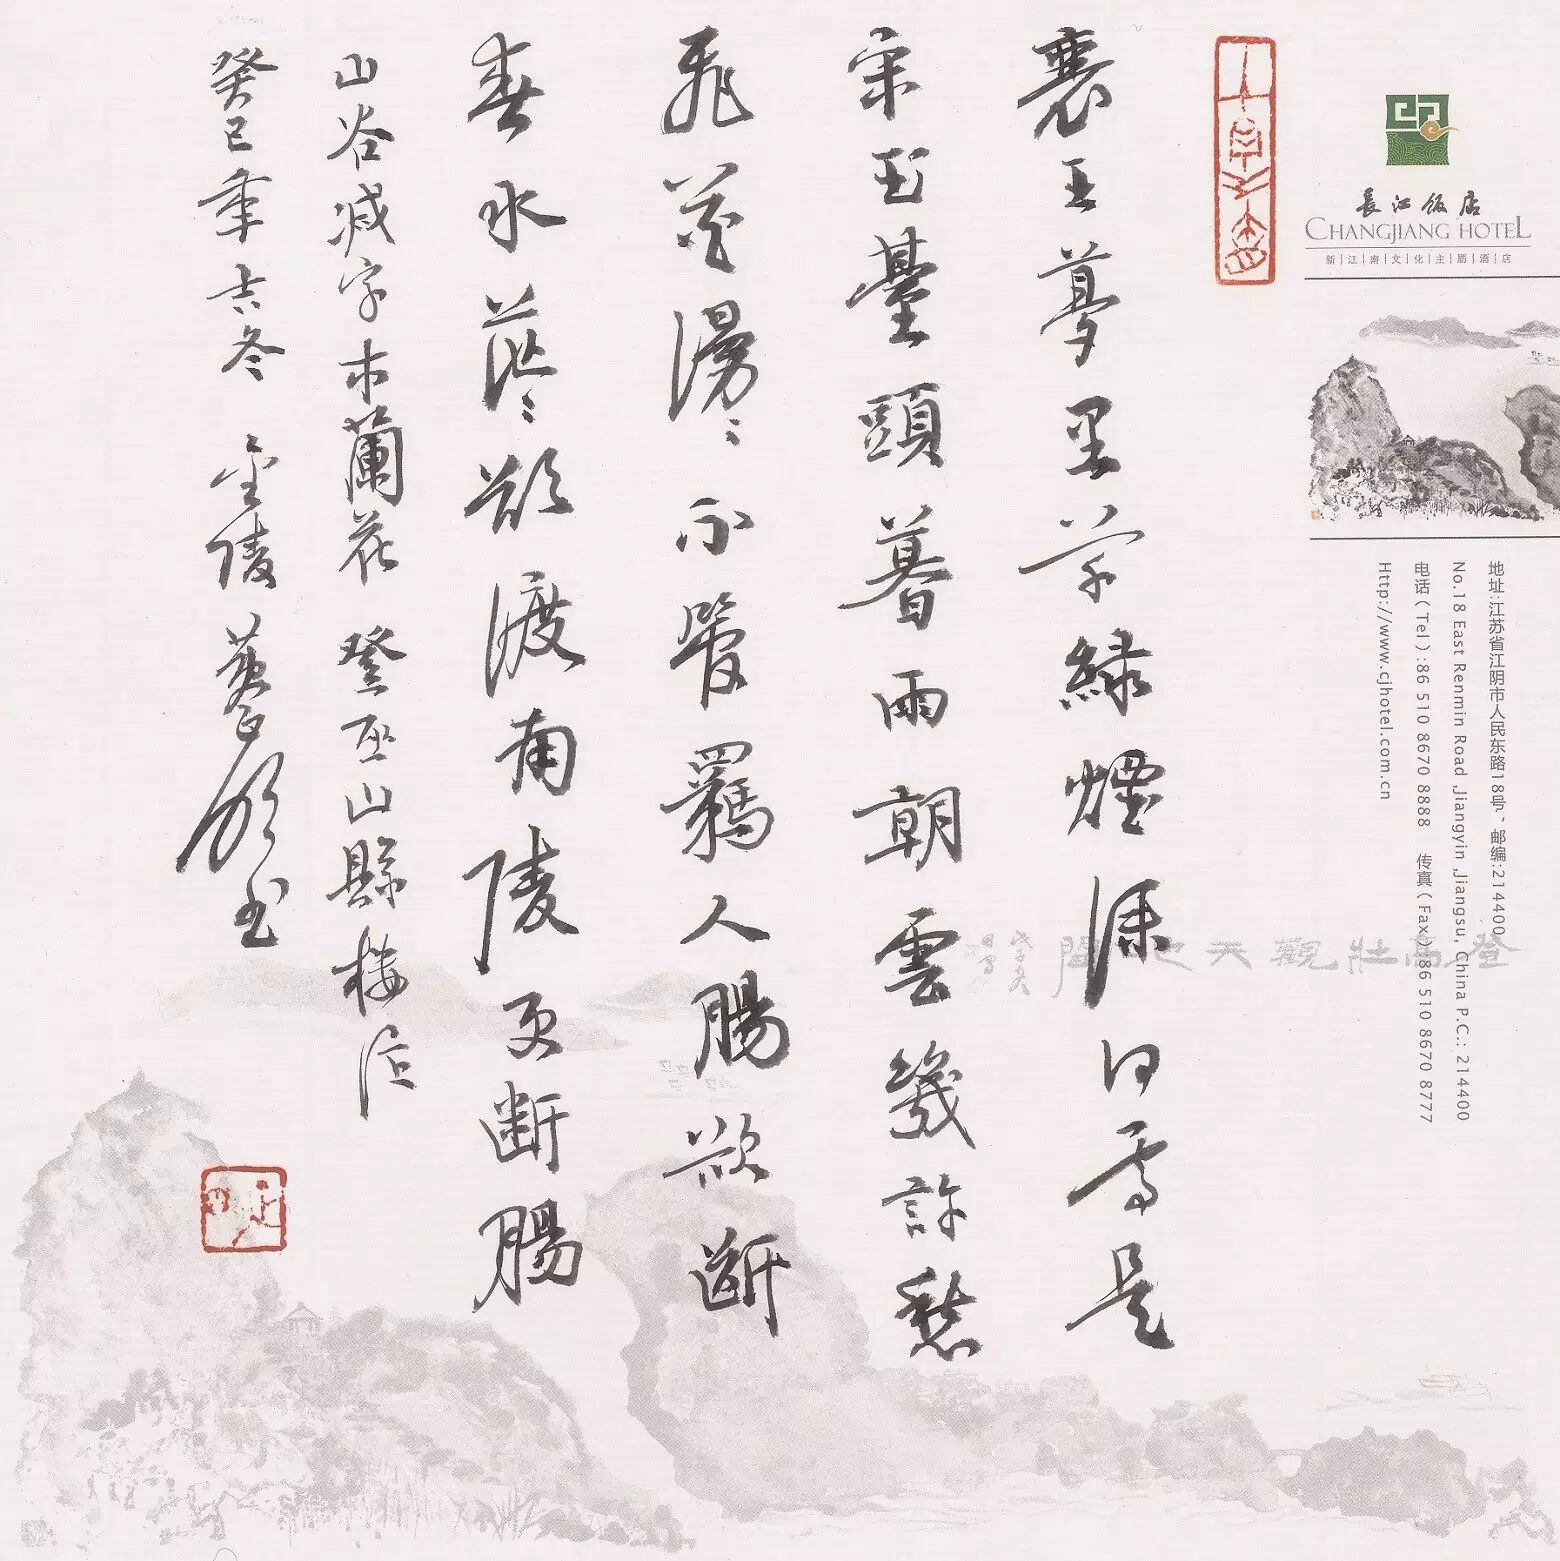 長江飯店
CHANGJIANG HOTEL
新|江|南|文|化|主|题|酒|店
地址:江苏省江阴市人民东路18号、邮编:214400
No.18 East Renmin Road ,Jiangyin ,Jiangsu, China P.C.: 214400
电话（Tel）:86 510 8670 8888 传真（Fax）:86 510 8670 8777
Http://www.cjhotel.com.cn
登高壯觀天地間
襄王夢里草綠煙深何處是
宋玉臺頭暮雨朝雲幾許愁
飛花漫〻不管羈人腸欲斷
春水茫〻欲渡南陵更斷腸
山谷減字木蘭花 登巫山縣樓作
癸巳年吉冬 金陵 書